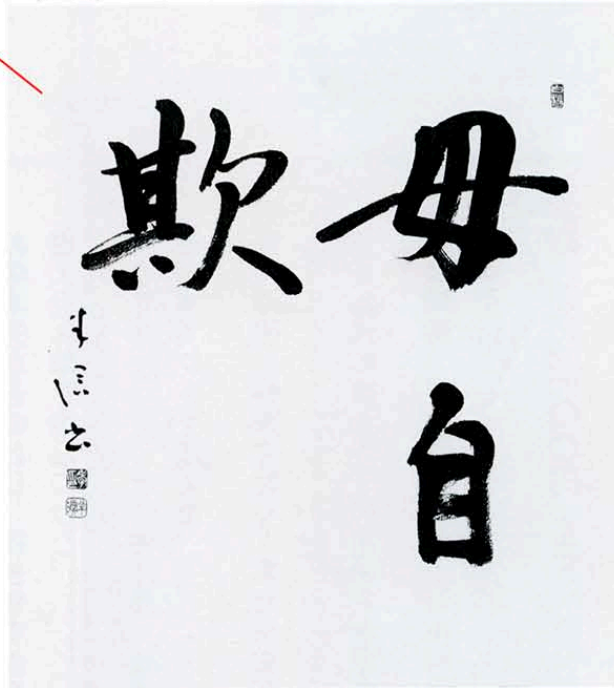 毋自
欺